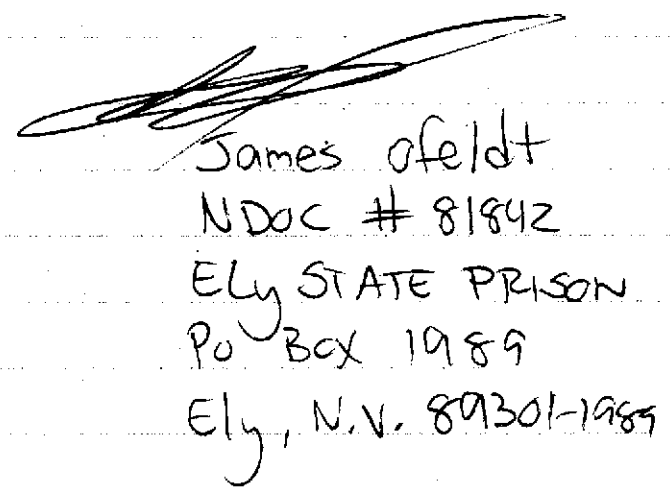 James Ofeldt
NDOC # 81842
Ely STATE PRISON
Po Box 1989
Ely, N.V. 89301-1989